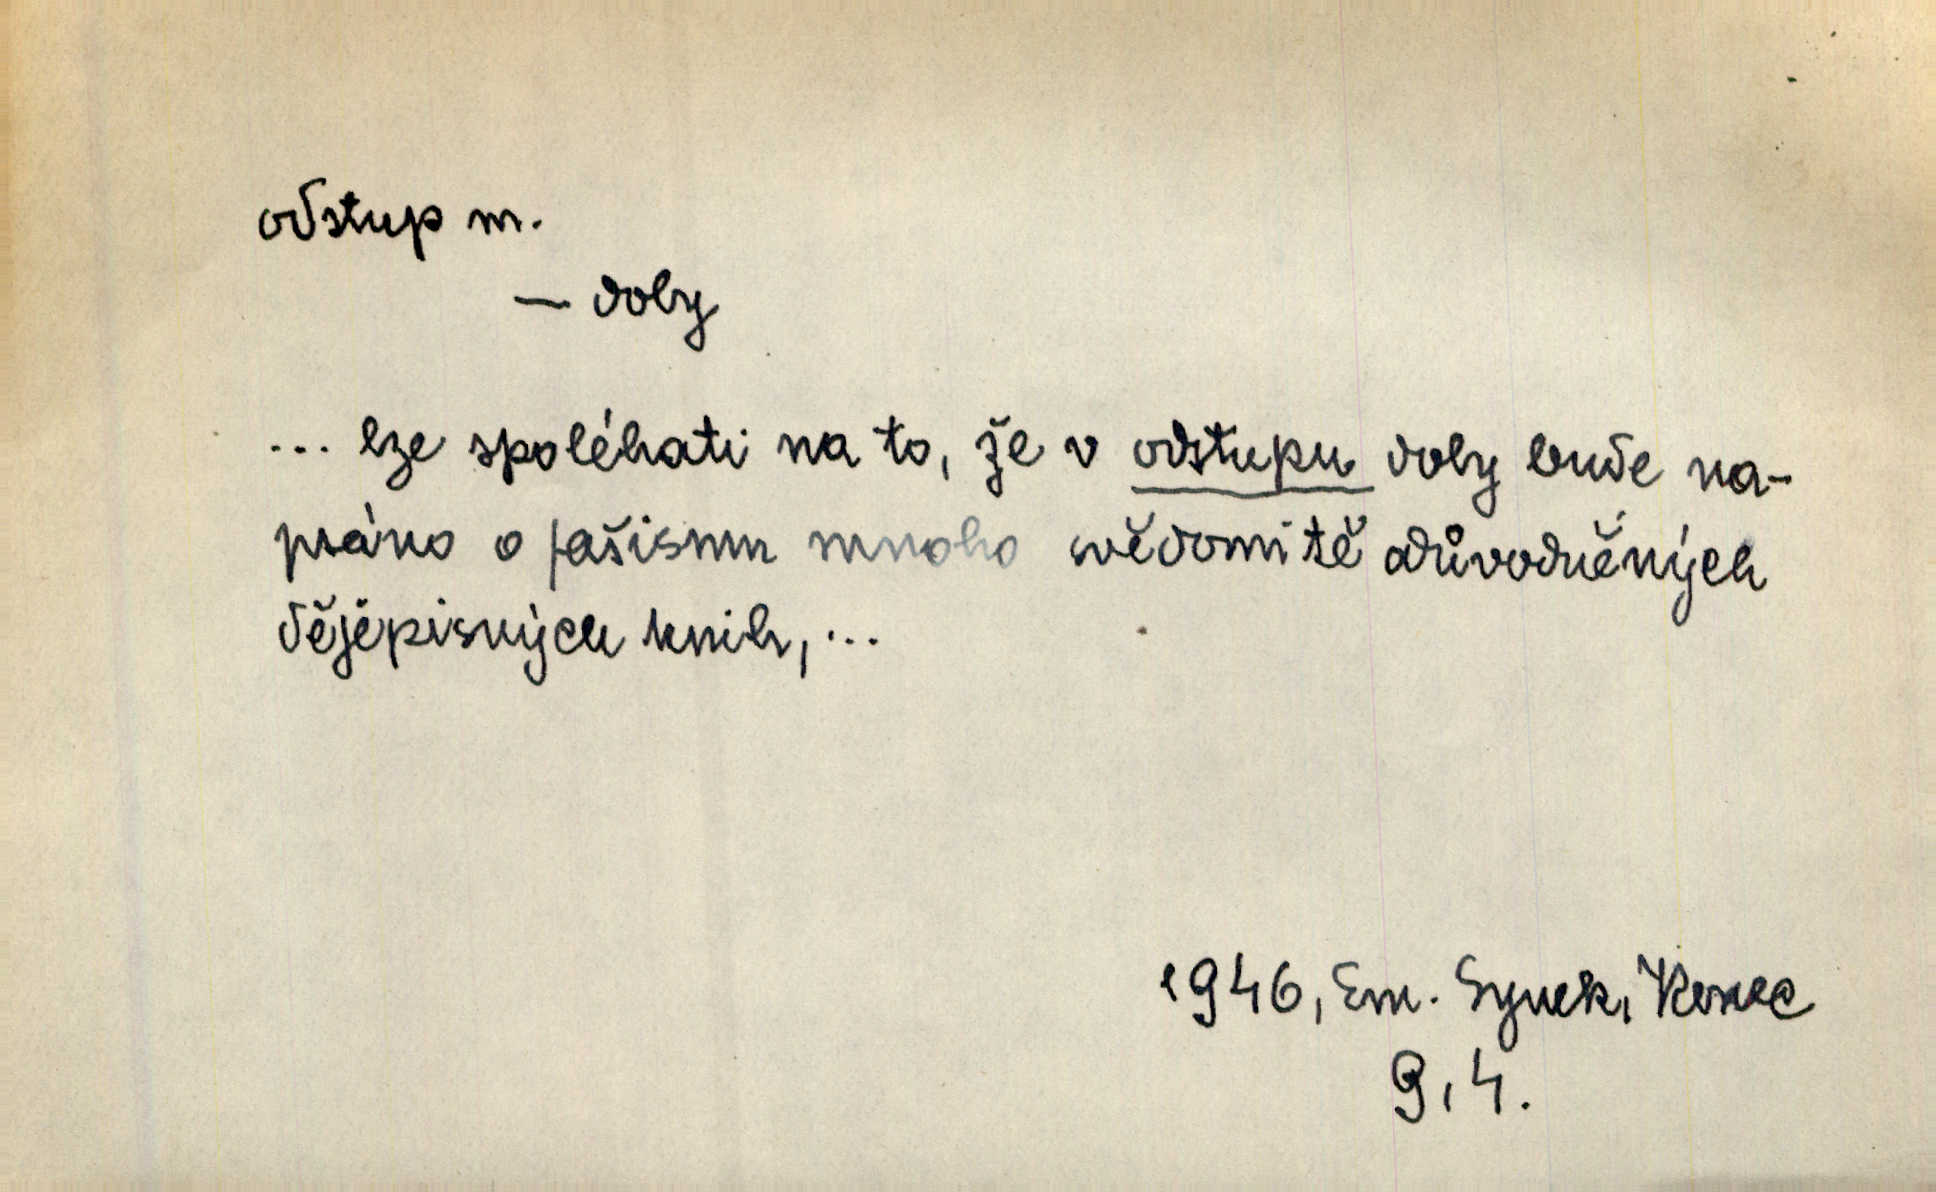 odstup m.
— doby
... lze spoléhati na to, že v odstupu doby bude na-
psáno o fašismu mnoho svědomitě odůvodněných
dějepisných knih, ...
1946, Em. Synek, Konec
9, 4.